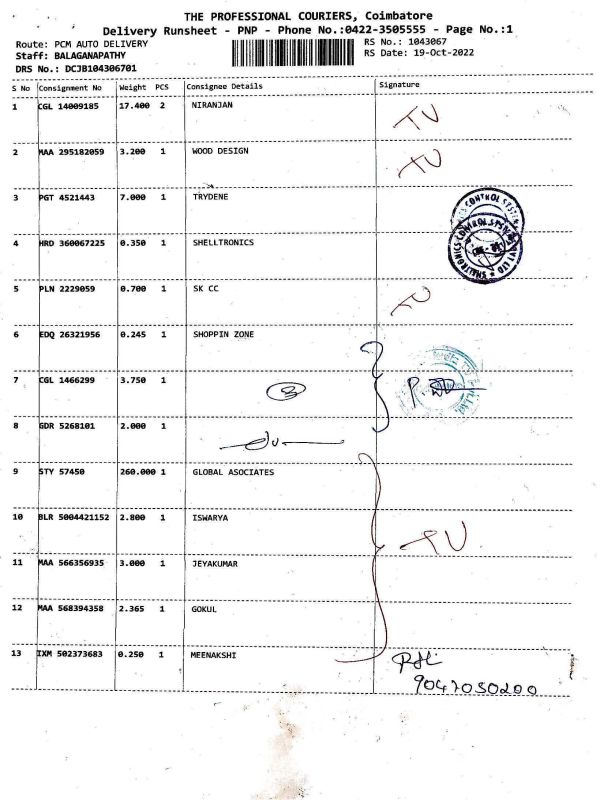 THE PROFESSIONAL COURIERS, Coimbatore
Delivery Runsheet - PNP - Phone No.:0422-3505555 - Page No.:1
Route: PCM AUTO DELIVERY
RS No.: 1043067
Staff: BALAGANAPATHY
RS Date: 19-Oct-2022
DRS No.: DCJB104306701
S No Consignment No Weight PCS Consignee Details Signature
1 CGL 14009185 17.400 2 NIRANJAN
TU
2 MAA 295182059 3.200 1 WOOD DESIGN
TU
3 PGT 4521443 7.000 1 TRYDENE
4 HRD 360067225 0.350 1 SHELLTRONICS
5 PLN 2229059 0.700 1 SK CC
TU
6 EDQ 26321956 0.245 1 SHOPPIN ZONE
7 CGL 1466299 3.750 1
3
8 GDR 5268101 2.000 1
9 STY 57450 260.000 1 GLOBAL ASOCIATES
10 BLR 5004421152 2.800 1 ISWARYA
TU
11 MAA 566356935 3.000 1 JEYAKUMAR
12 MAA 568394358 2.365 1 GOKUL
13 IXM 502373683 0.250 1 MEENAKSHI
9047050200